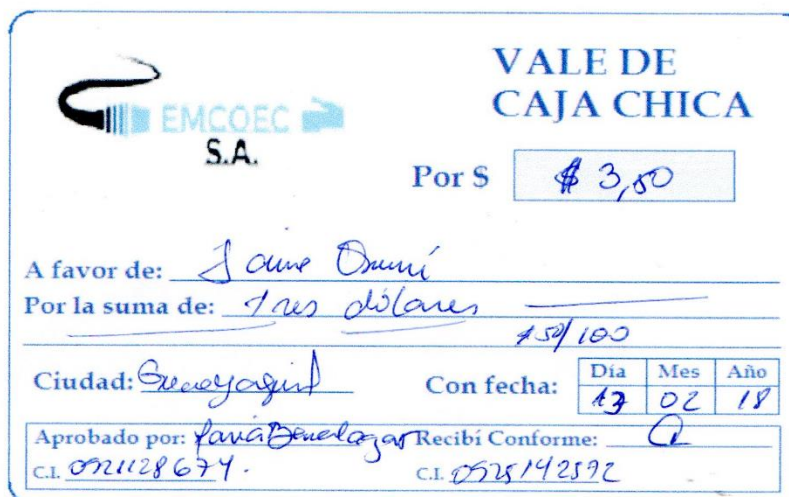 EMCOEC
S.A.
VALE DE
CAJA CHICA
Por $ $ 3,50
A favor de: Jaime
Por la suma de: Tres dólares
50/100
Ciudad: Guayaquil Con fecha: Día Mes Año
13 02 18
Aprobado por: Recibí Conforme:
C.I. C.I. 0925142592